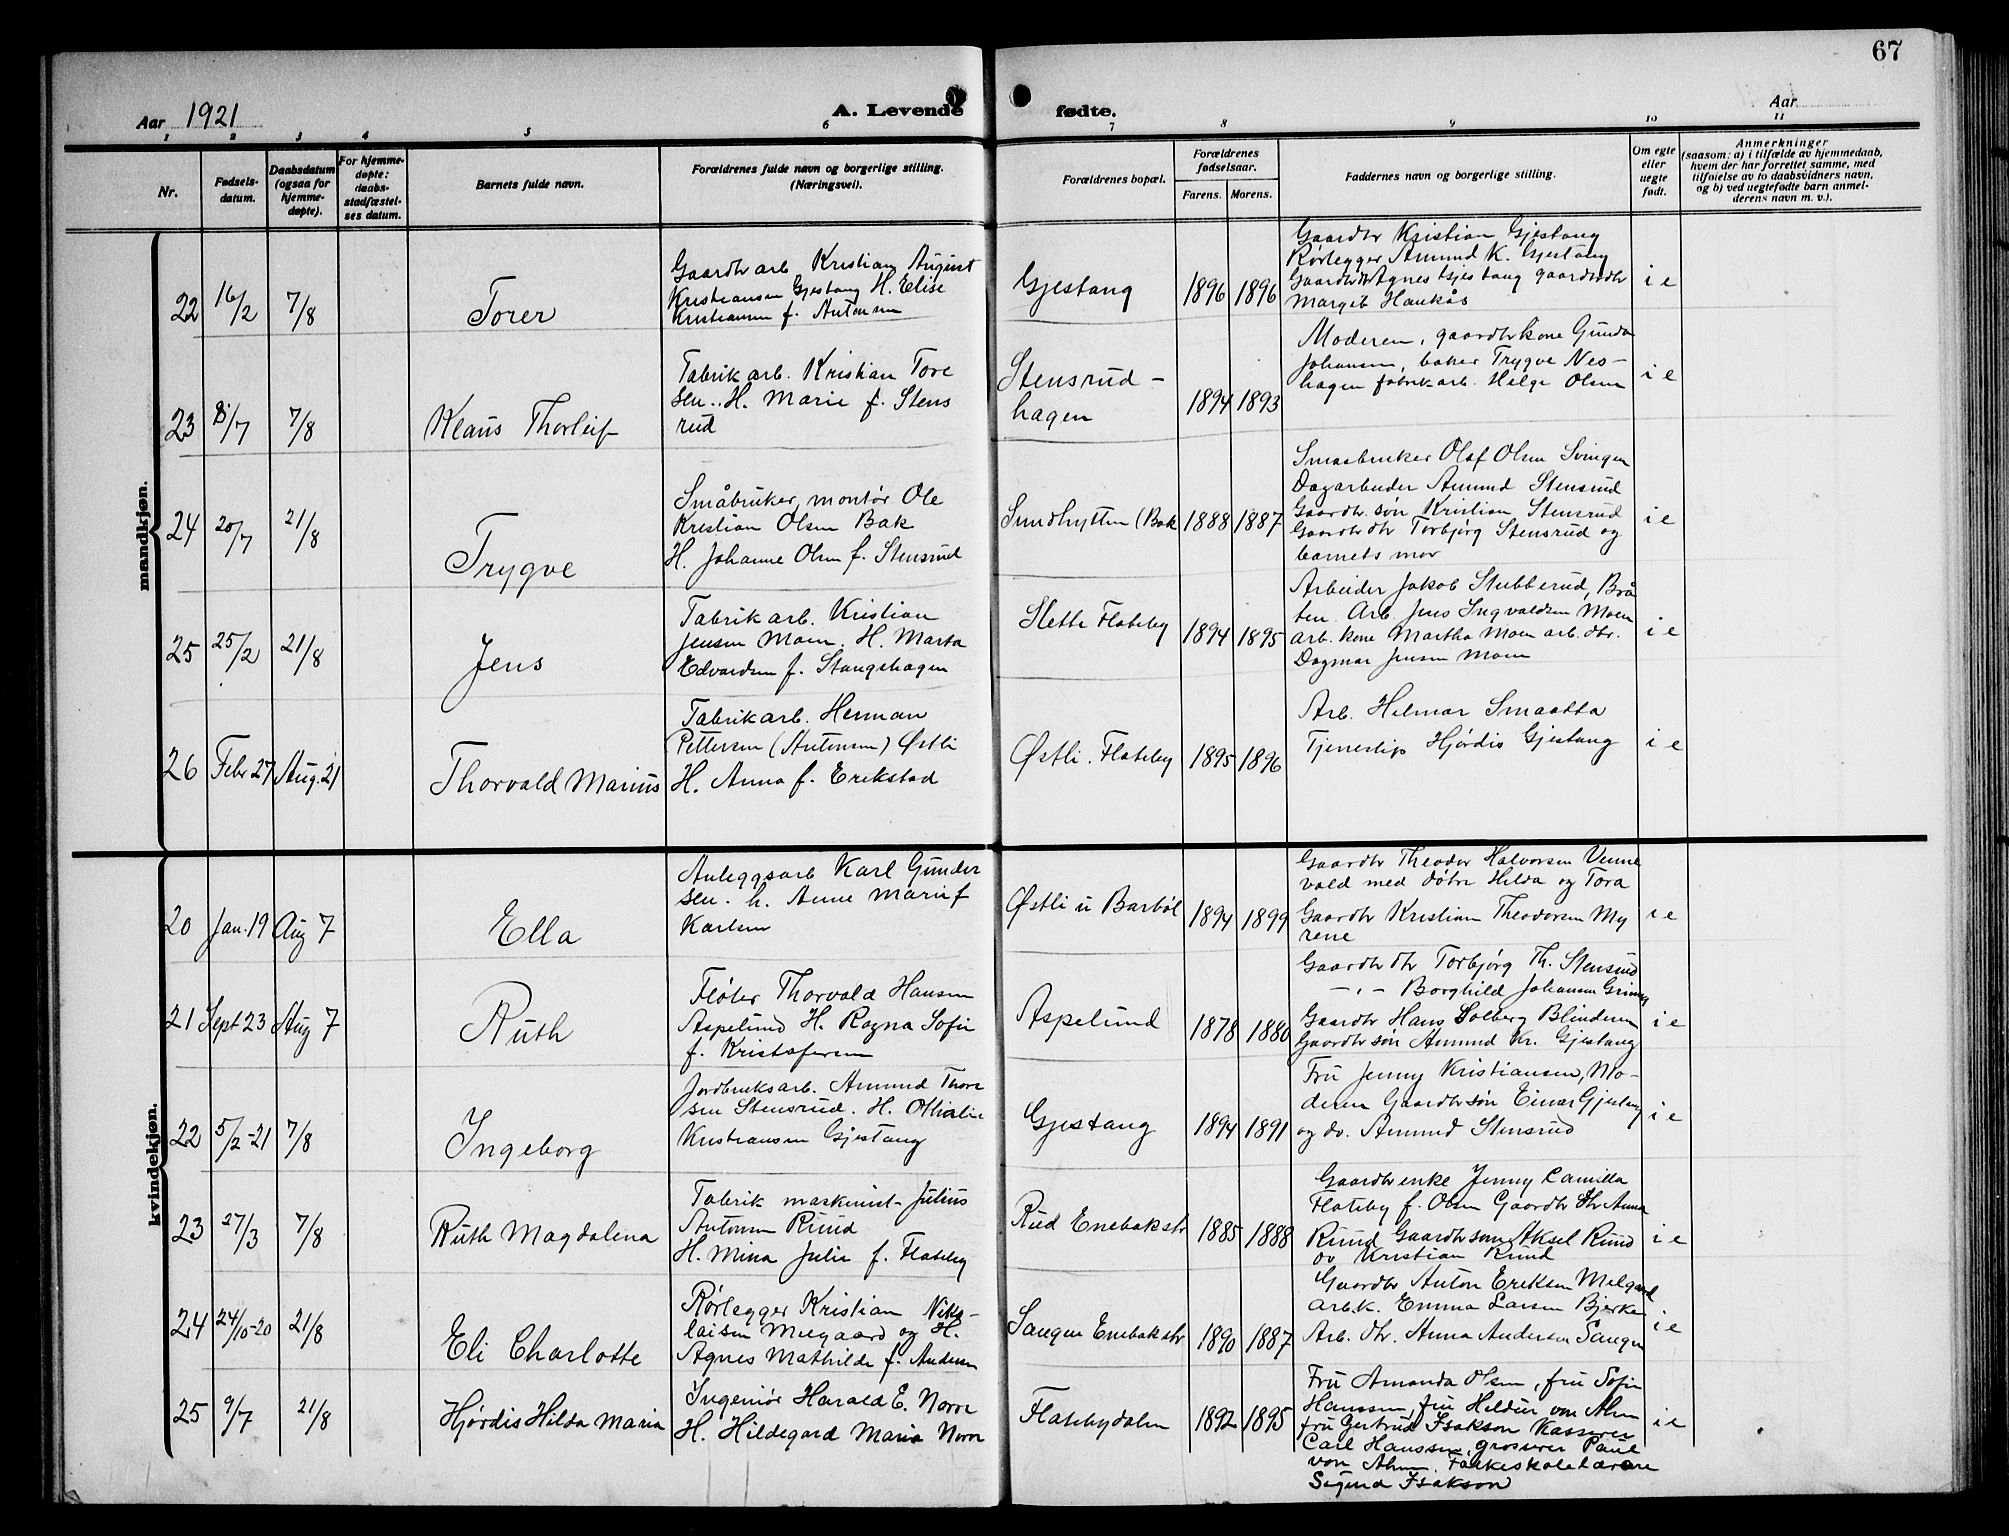 67
Aar 1921
A. Levende fødte.
Aar
1 2 3 4 5 6 7 8 9 10 11
Nr.
Fødsels-
datum.
Daabsdatum
(ogsaa for
hjemme-
døpte).
For hjemme-
døpte:
daabs-
stadfæstel-
ses datum.
Barnets fulde navn.
Forældrenes fulde navn og borgerlige stilling.
(Næringsvei).
Forældrenes bopæl.
Forældrenes
fødselsaar.
Farens. Morens.
Faddernes navn og borgerlige stilling.
Om egte
eller
uegte
født.
Anmerkninger
(saasom: a) i tilfælde av hjemmedaab,
hvem der har forrettet samme, med
tilføielse av to daabsvidners navn,
og b) ved uegtefødte barn anmel-
derens navn m. v.).
mandkjøn.
22 16/2 7/8 Torer
Gaardbr arb Kristian August
Kristiansen Gjestang H. Elise
Kristiansen f. Antonsen
Gjestang 1896 1896
Gaardbr Kristian Gjestang
Rørlegger Amund K. Gjestang
Gaardbr dtr Agnes Gjestang gaardbrdtr
Margit Haukås
i e
23 8/7 7/8 Klaus Thorleif
Fabrik arb. Kristian Tore
sen.. H. Marie f. Stens
rud
Stensrud -
hagen 1894 1893
Moderen, gaardbr kone Gunda
Johansen, baker Trygve Nes-
hagen fabrik arb. Helge Olsen
i e
24 20/7 21/8 Trygve
Småbruker, montør Ole
Kristian Olsen Bak
H. Johanne Olsen f. Stensrud
Sundhytten (Bak 1888 1887
Smaabruker Olaf Olsen Svingen
Dagarbeider Amund Stensrud
Gaardbr søn Kristian Stensrud
Gaardbr dtr Torbjørg Stensrud og
barnets mor
i e
25 25/2 21/8 Jens
Fabrik arb. Kristian
Jensen Moen. H. Marta
Edvardsen f. Stangshagen
Slette Flateby 1894 1895
Arbeider Jakob Stubberud, Brå
ten. Arb. Jens Ingvaldsen Moen
arb. kone Martha Moen arb. dtr.
Dagmar Jensen Moen
i e
26 Febr 27 Aug. 21 Thorvald Marius
Fabrik arb. Herman
Pettersen (Antonsen) Østli
H. Anna f. Erikstad
Østli. Flateby 1895 1896
Arb. Helmar Smaatta
Tjenestep. Hjørdis Gjestang
i e
kvindekjøn.
20 Jan. 19 Aug 7 Ella
Anleggsarb Karl Gunder
sen. h. Anne Marie f
Karlsen
Østli u Barbøl 1894 1899
Gaardbr Theodor Halvorsen Venne
vold med døtre Hilda og Tora
Gaardbr Kristian Theodorsen My
rene
i e
21 Sept 23 Aug 7 Ruth
Fløter Thorvald Hansen
Aspelund H. Ragna Sofie
f. Kristofersen
Aspelund 1878 1880
Gaardbr dtr Torbjørg Th. Stensrud
— " — Borghild Johansen
Gaardbr Hans Solberg Blinderen
Gaardbr søn Amund Kr. Gjestang
i e
22 5/2 -21 7/8 Ingeborg
Jordbruksarb. Amund Thore
sen Stensrud. H. Othalie
Kristiansen Gjestang
Gjestang 1894 1891
Fru Jenny Kristiansen, Mo-
deren Gaardbr søn Einar Gjestang
og do. Amund Stensrud
i e
23 27/3 7/8 Ruth Magdalena
Fabrik maskinist Julius
Antonsen Ruud
H. Mina Julie f. Flateby
Rud Enebakstr 1885 1888
Gaardbr enke Jenny Camilla
Flateby f. Olsen Gaardbr dtr Anna
Ruud Gaardbr søn Aksel Ruud
og Kristian Ruud
i e
24 24/10-20 21/8 Eli Charlotte
Rørlegger Kristian Niko-
laisen Melgaard og H.
Agnes Mathilde f. Andersen
Saugen Enebakstr 1890 1887
Gaardbr Anton Eriksen Melgard
arb.k. Emma Larsen Bjerke
Arb. dtr. Anna Andersen Saugen
i e
25 9/7 21/8 Hjørdis Hilda Maria
Ingeniør Harald E. Norre
H. Hildegard Maria Norre
Flatebydalen 1892 1895
Fru Amanda Olsen, fru Sofie
Hanssen, fru Heldur von Ahn
fru Gertrud Isakson Kasserer
Carl Hanssen, grosserer Paul
von Ahn. Folkeskolelærere
Sigurd Isakson
i e